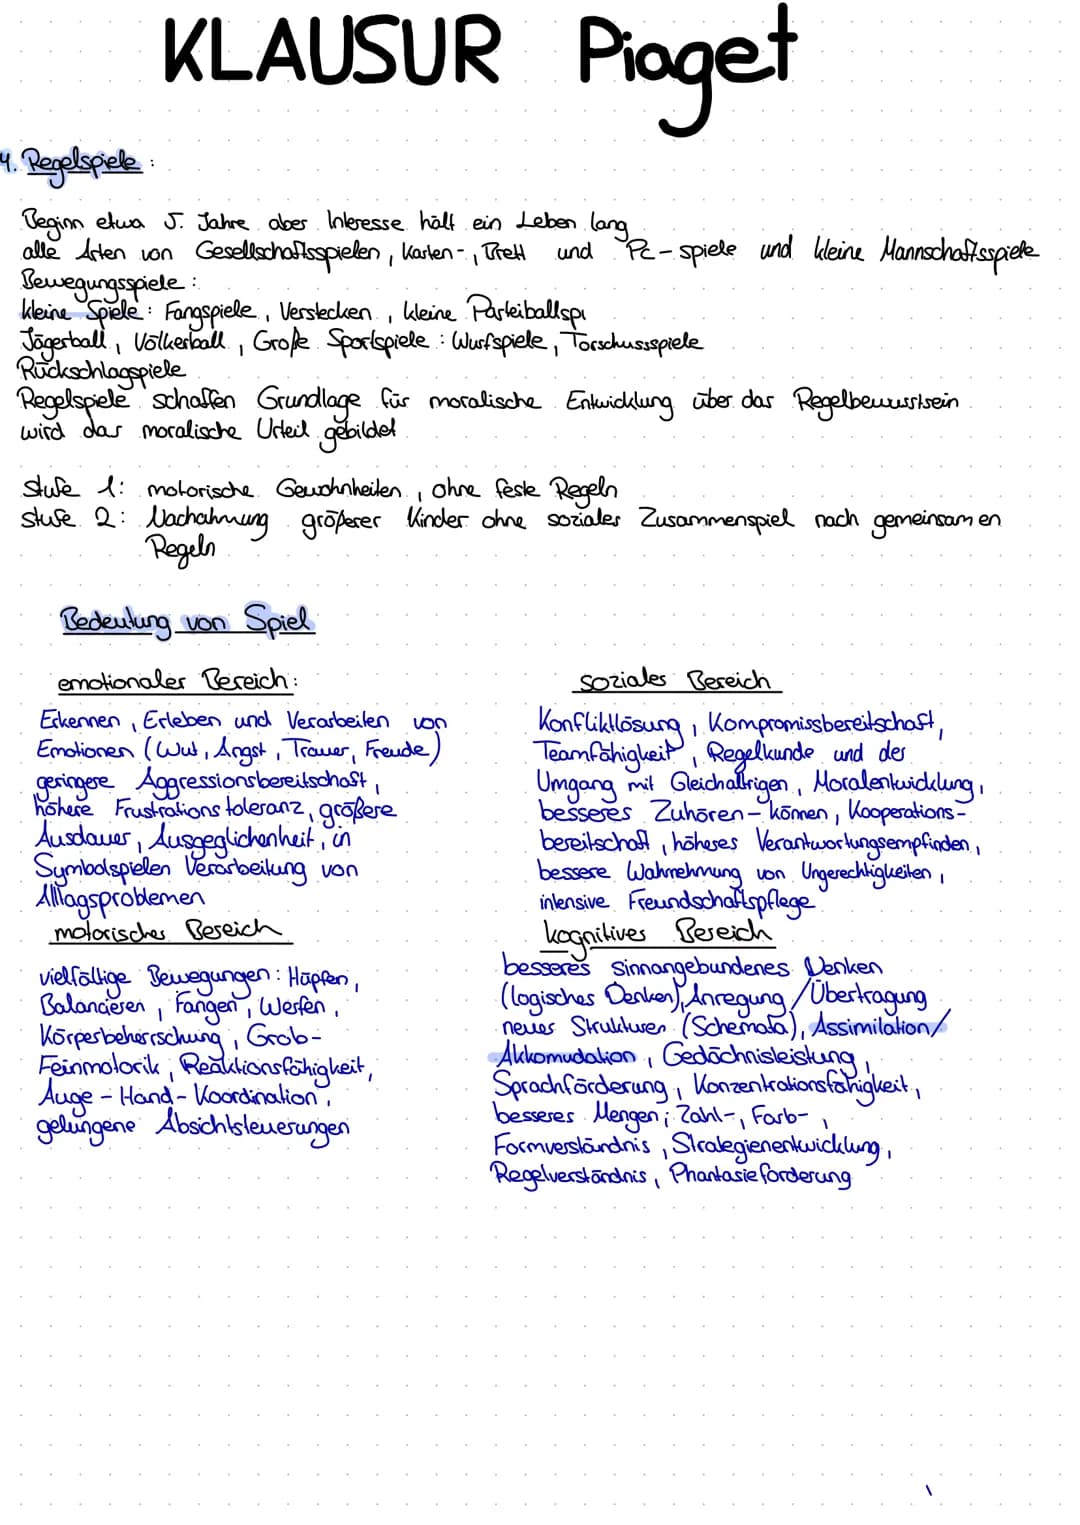 KLAUSUR Piaget
4. Regelspiele :
Beginn etwa 5. Jahre aber Interesse hält ein Leben lang
alle Arten von Gesellschaftsspielen, Karten-, Brett und Pc-spiele und kleine Mannschaftsspiele
Bewegungsspiele :
kleine Spiele : Fangspiele, Verstecken, kleine Parteiballspi
Jägerball, Völkerball, Große Sportspiele : Wurfspiele, Torschussspiele
Rückschlagspiele
Regelspiele schaffen Grundlage für moralische Entwicklung über das Regelbewusstsein
wird das moralische Urteil gebildet
Stufe 1: motorische Gewohnheiten, ohne feste Regeln
Stufe 2: Nachahmung größerer Kinder ohne soziales Zusammenspiel nach gemeinsamen
Regeln
Bedeutung von Spiel
emotionaler Bereich:
Erkennen, Erleben und Verarbeiten von
Emotionen (Wut, Angst, Trauer, Freude)
geringere Aggressionsbereitschaft,
höhere Frustrationstoleranz, größere
Ausdauer, Ausgeglichenheit, in
Symbolspielen Verarbeitung von
Alltagsproblemen
motorisches Bereich
vielfältige Bewegungen: Hüpfen,
Balancieren, Fangen, Werfen,
Körperbeherrschung, Grob-
Feinmotorik, Reaktionsfähigkeit,
Auge-Hand-Koordination,
gelungene Absichtsteuerungen
soziales Bereich
Konfliktlösung, Kompromissbereitschaft,
Teamfähigkeit, Regelkunde und der
Umgang mit Gleichaltrigen, Moralentwicklung,
besseres Zuhören-können, Kooperations-
bereitschaft, höheres Verantwortungsempfinden,
bessere Wahrnehmung von Ungerechtigkeiten,
intensive Freundschaftspflege
kognitives Bereich
besseres sinnangebundenes Denken
(logisches Denken), Anregung/Übertragung
neuer Strukturen (Schemata), Assimilation/
Akkomudation, Gedächnisleistung,
Sprachförderung, Konzentrationsfähigkeit,
besseres Mengen; Zahl-, Farb-,
Formverständnis, Strategienentwicklung,
Regelverständnis, Phantasieforderung